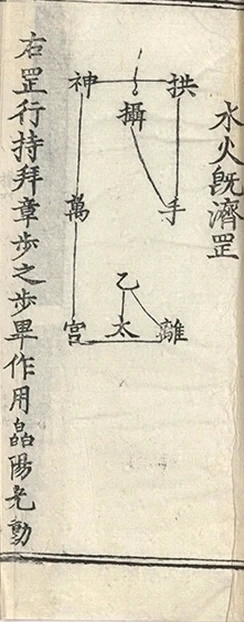 水火既濟罡
拱手離
攝乙太
神萬宮
右罡行持拜章步之步畢作用皛陽光動